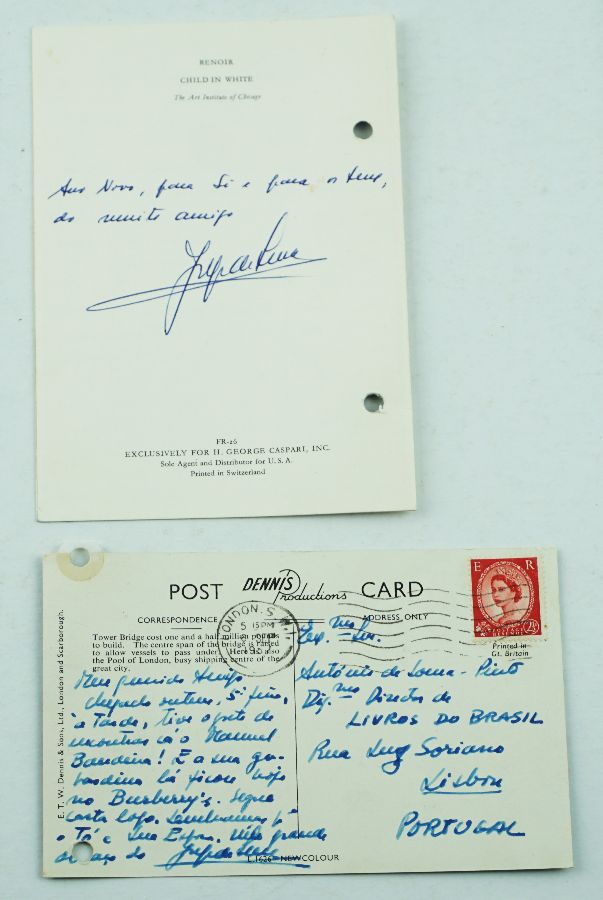 RENOIR
CHILD IN WHITE
The Art Institute of Chicago
Ano Novo, para Si e para os seus,
do muito amigo
Jorge de Sena
FR-26
EXCLUSIVELY FOR H. GEORGE CASPARI, INC.
Sole Agent and Distributor for U.S.A.
Printed in Switzerland
POST DENNIS Productions CARD
CORRESPONDENCE
ADDRESS ONLY
Tower Bridge cost one and a half million pounds
to build. The centre span of the bridge is raised
to allow vessels to pass under. Here is also
the Pool of London, busy shipping centre of the
great city.
E. T. W. Dennis & Sons, Ltd., London and Scarborough.
LONDON. S.W.1
5 15PM
E R
POSTAGE REVENUE
2½
Printed in
Gt. Britain
Meu querido Amigo
Chegado ontem, 5ª feira,
à tarde, tive o gosto de
encontrar cá o Manuel
Bandeira! E a sua ga-
bardina lá ficou hoje
no Burberry's. Segue
carta logo. Lembranças pª
o Tó e sua Espª. Um grande
abraço do Jorge de Sena
Exmo Sr.
António de Souza-Pinto
Dig.mo Director de
LIVROS DO BRASIL
Rua Luz Soriano
Lisboa
PORTUGAL
NEWCOLOUR